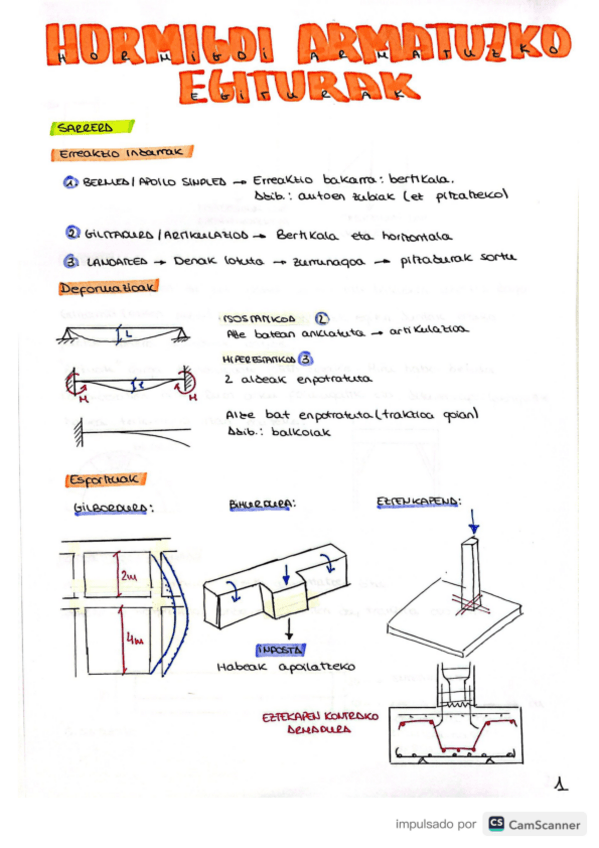 HORMIGOI ARMATUZKO
EGITURAK
SARRERA
Erreakzio indarrak
1 BERMEA/APOIO SINPLEA → Erreakzio bakarra: bertikala.
Adib.: autoen zubiak (ez pitzatzeko)
2 GILTZADURA/ARTIKULAZIOA → Bertikala eta horizontala
3 LANDATZEA → Denak lotuta → zurrunagoa → pitzadurak sortu
Deformazioak
ISOSTATIKOA 2
Alde batean ainglatuta → artikulazioa
L
HIPERESTATIKOA 3
2 aldeak enpotratuta
M
M
Alde bat enpotratuta (trakzioa goian)
Adib.: balkoiak
Esfortzuak
GILBORDURA:
BIHURDURA:
EZTENKAPENA:
2m
4m
INPOSTA
Habeak apoilatzeko
EZTEKAPEN KONTRAKO
ARMADURA
1
impulsado por CS CamScanner